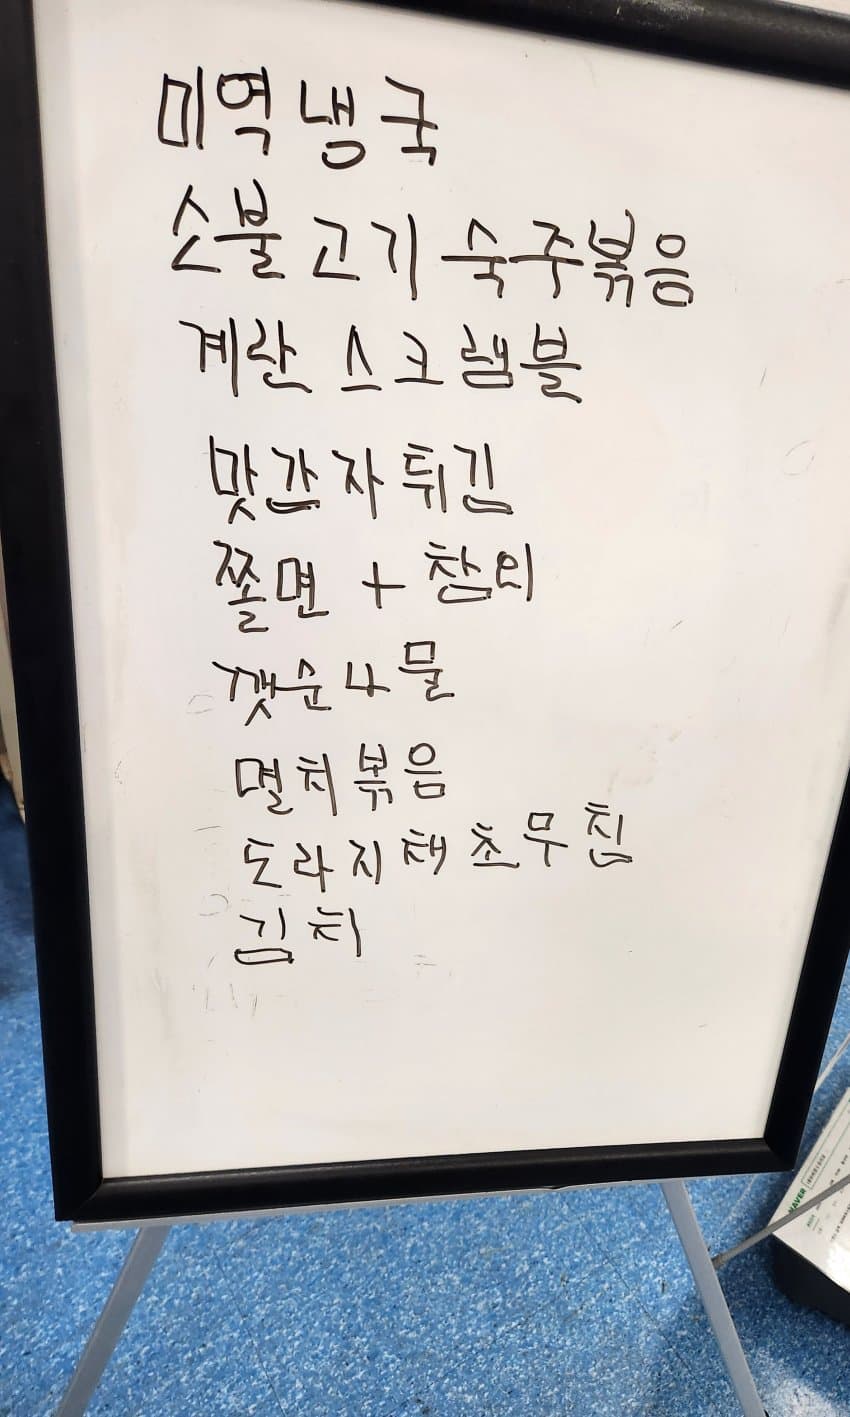 미역냉국
소불고기숙주볶음
계란스크램블
맛감자튀김
쫄면+참외
깻순나물
멸치볶음
도라지채초무침
김치
NAVER